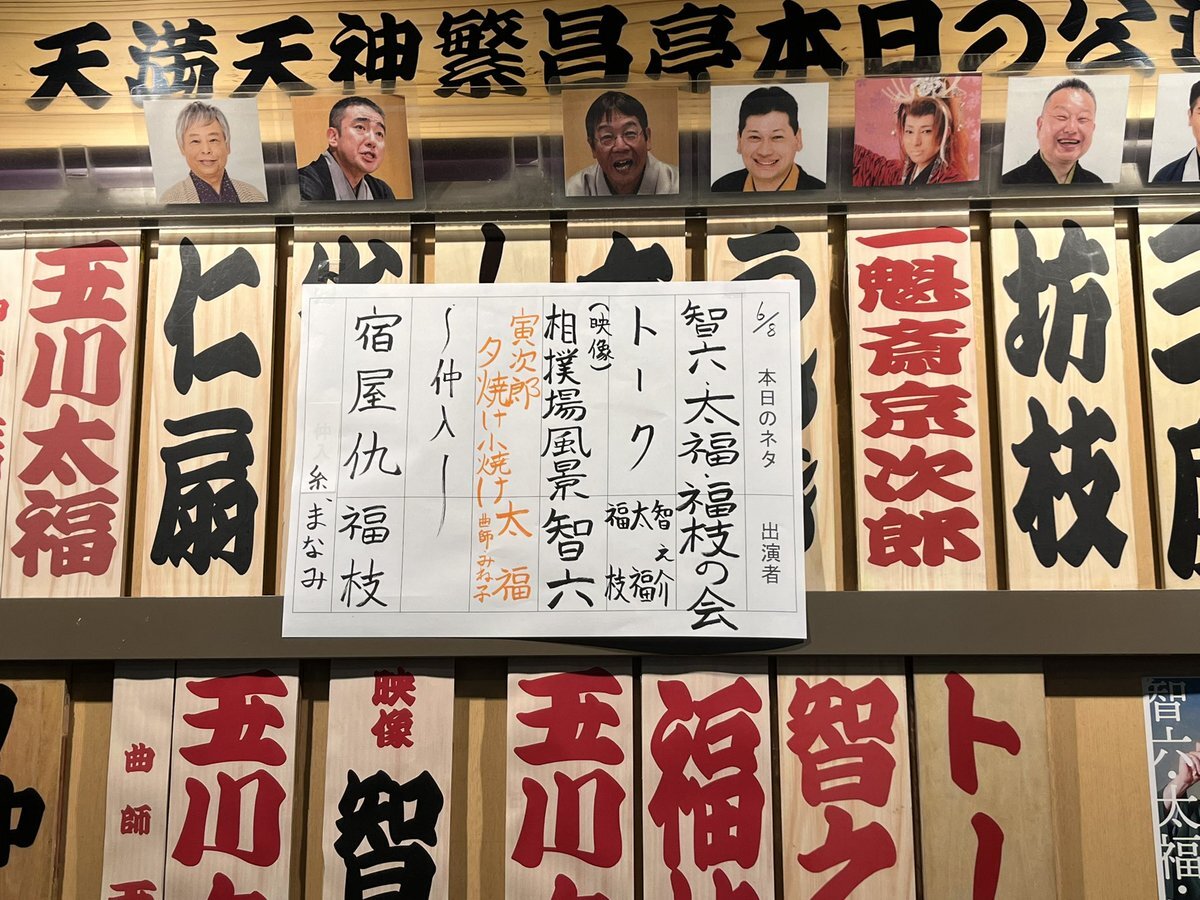 天満天神繁昌亭本日の
坊枝
一魁斎京次郎
仁扇
玉川太福
6/8 本日のネタ 出演者
智六・太福・福枝の会
トーク 智之介 太福 福枝
(映像)
相撲場風景 智六
寅次郎
夕焼け小焼け 太福
曲師みね子
〜仲入〜
宿屋仇 福枝
糸、まなみ
智六・太福・
トー
智之
福枝
玉川
映像
智
玉川
曲師